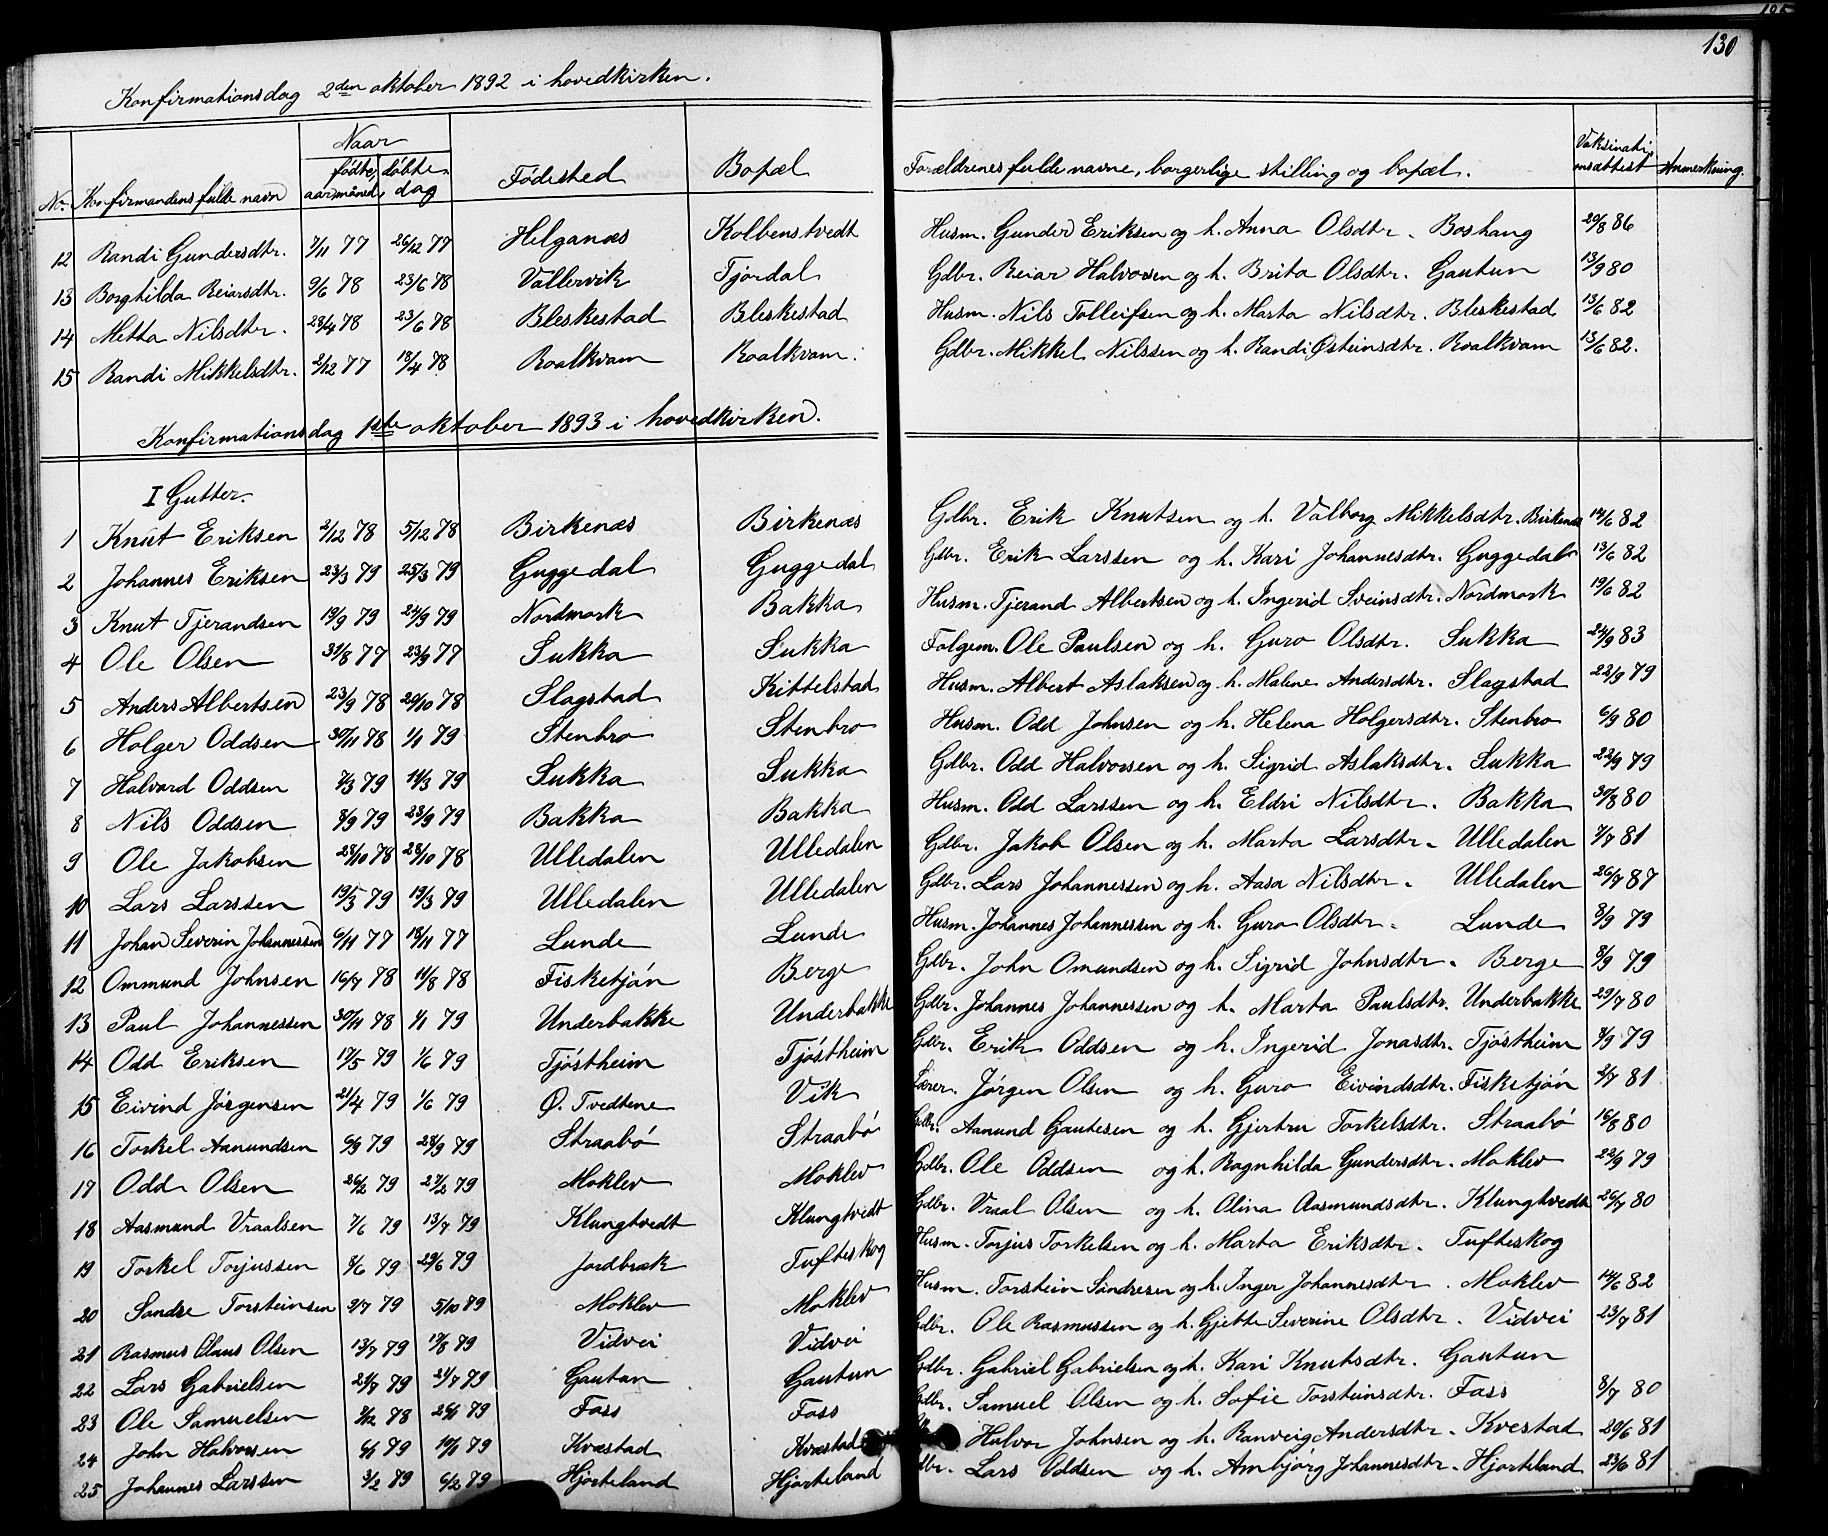 130
Konfirmationsdag 2den oktober 1892 i hovedkirken.
No. Konfirmandens fulde navn Naar fødte aar, maaned døbte dag Fødested Bopæl Forældrenes fulde navne, borgerlige stilling og bopæl. Vaksinationsattest Anmerkning.
12 Randi Gundersdtr. 7/11 77 26/12 77 Helganæs Kolbenstvedt Husm. Gunder Eriksen og h. Anna Olsdtr. Boshang 29/8 86
13 Borghilda Reiarsdtr. 9/6 78 23/6 78 Vallervik Tjordal Gdbr. Reiar Halvorsen og h. Brita Olsdtr. Gautun 13/9 80
14 Metta Nilsdtr. 28/4 78 23/6 78 Bleskestad Bleskestad Husm. Nils Tolleifsen og h. Marta Nilsdtr. Bleskestad 13/6 82
15 Randi Mikkelsdtr. 2/12 77 18/4 78 Roalkvam Roalkvam. Gdbr. Mikkel Nilssen og h. Randi Østeinsdtr. Roalkvam 13/6 82.
Konfirmationsdag 1ste oktober 1893 i hovedkirken.
I Gutter.
1 Knut Eriksen 2/12 78 5/12 78 Birkenæs Birkenæs Gdbr. Erik Knutsen og h. Valborg Mikkelsdtr. Birkenæs 14/6 82
2 Johannes Eriksen 23/3 79 25/3 79 Guggedal Guggedal Gdbr. Erik Larssen og h. Kari Johannesdtr. Guggedal 13/6 82
3 Knut Tjerandsen 19/9 79 24/9 79 Nordmork Bakka Husm. Tjerand Albertsen og h. Ingerid Sveinsdtr. Nordmork 19/6 82
4 Ole Olsen 31/8 77 23/9 77 Sukka Sukka Folgem. Ole Paulsen og h. Guro Olsdtr. Sukka 24/9 83
5 Anders Albertsen 23/9 78 20/10 78 Slagstad Kittelstad Husm. Albert Aslaksen og h. Malene Andersdtr. Slagstad 22/9 79
6 Holger Oddsen 30/11 78 1/1 79 Stenbro Stenbro Husm. Odd Johnsen og h. Helena Holgersdtr. Stenbro 6/9 80
7 Halvard Oddsen 7/3 79 14/3 79 Sukka Sukka Gdbr. Odd Halvorsen og h. Sigrid Aslaksdtr. Sukka 22/9 79
8 Nils Oddsen 8/9 79 23/9 79 Bakka Bakka Husm. Odd Larssen og h. Eldri Nilsdtr. Bakka 30/8 80
9 Ole Jakobsen 28/10 78 28/10 78 Ulledalen Ulledalen Gdbr. Jakob Olsen og h. Marta Larsdtr. Ulledalen 7/7 81
10 Lars Larssen 19/3 79 19/3 79 Ulledalen Ulledalen Gdbr. Lars Johannessen og h. Aasa Nilsdtr. Ulledalen 26/7 87
11 Johan Severin Johannessen 6/11 77 18/11 77 Lunde Lunde Husm. Johannes Johannessen og h. Guro Olsdtr. Lunde 8/9 79
12 Ommund Johnsen 16/7 78 11/8 78 Fisketjön Berge Gdbr. John Omundsen og h. Sigrid Johnsdtr. Berge 8/9 79
13 Paul Johannessen 30/11 78 1/1 79 Underbakke Underbakke Gdbr. Johannes Johannessen og h. Marta Paulsdtr. Underbakke 29/7 80
14 Odd Eriksen 17/5 79 1/6 79 Tjöstheim Tjöstheim Gdbr. Erik Oddsen og h. Ingerid Jonasdtr. Tjöstheim 8/9 79
15 Eivind Jørgensen 21/4 79 1/6 79 Ø. Tvedtene Vik Lærer. Jørgen Olsen og h. Guro Eivindsdtr. Fisketjön 2/7 81
16 Torkel Aanundsen 6/9 79 28/9 79 Straabö Straabö Gdbr. Aanund Gautesen og h. Gjertru Torkelsdtr. Straabö 16/8 80
17 Odd Olsen 26/2 79 27/2 79 Moklev Moklev Gdbr. Ole Oddsen og h. Ragnhilda Gundersdtr. Moklev 22/9 79
18 Aasmund Vraalsen 7/6 79 13/7 79 Klungtvedt Klungtvedt Gdbr. Vraal Olsen og h. Olina Aasmundsdtr. Klungtvedt 26/7 80
19 Torkel Torjussen 8/6 79 29/6 79 Jordbræk Tufteskog Husm. Torjus Torkelsen og h. Marta Eriksdtr. Tufteskog
20 Sandre Torsteinsen 9/7 79 5/10 79 Moklev Moklev Husm. Torstein Sandresen og h. Inger Johannesdtr. Moklev 14/6 82
21 Rasmus Olaus Olsen 13/7 79 17/8 79 Vidvei Vidvei Gdbr. Ole Rasmussen og h. Gjette Severine Olsdtr. Vidvei 23/7 81
22 Lars Gabrielsen 21/7 79 21/7 79 Gautun Gautun Gdbr. Gabriel Gabrielsen og h. Kari Knutsdtr. Gautun
23 Ole Samuelsen 2/12 78 26/1 79 Foss Foss Gdbr. Samuel Olsen og h. Sofie Torsteinsdtr. Foss 8/7 80
24 John Halvorsen 6/1 79 10/1 79 Kvæstad Kvæstad Halvor Johnsen og h. Ranveig Andersdtr. Kvestad 20/6 81
25 Johannes Larssen 3/2 79 6/2 79 Hjorteland Hjorteland Gdbr. Lars Oddsen og h. Ambjörg Johannesdtr. Hjorteland 23/6 81